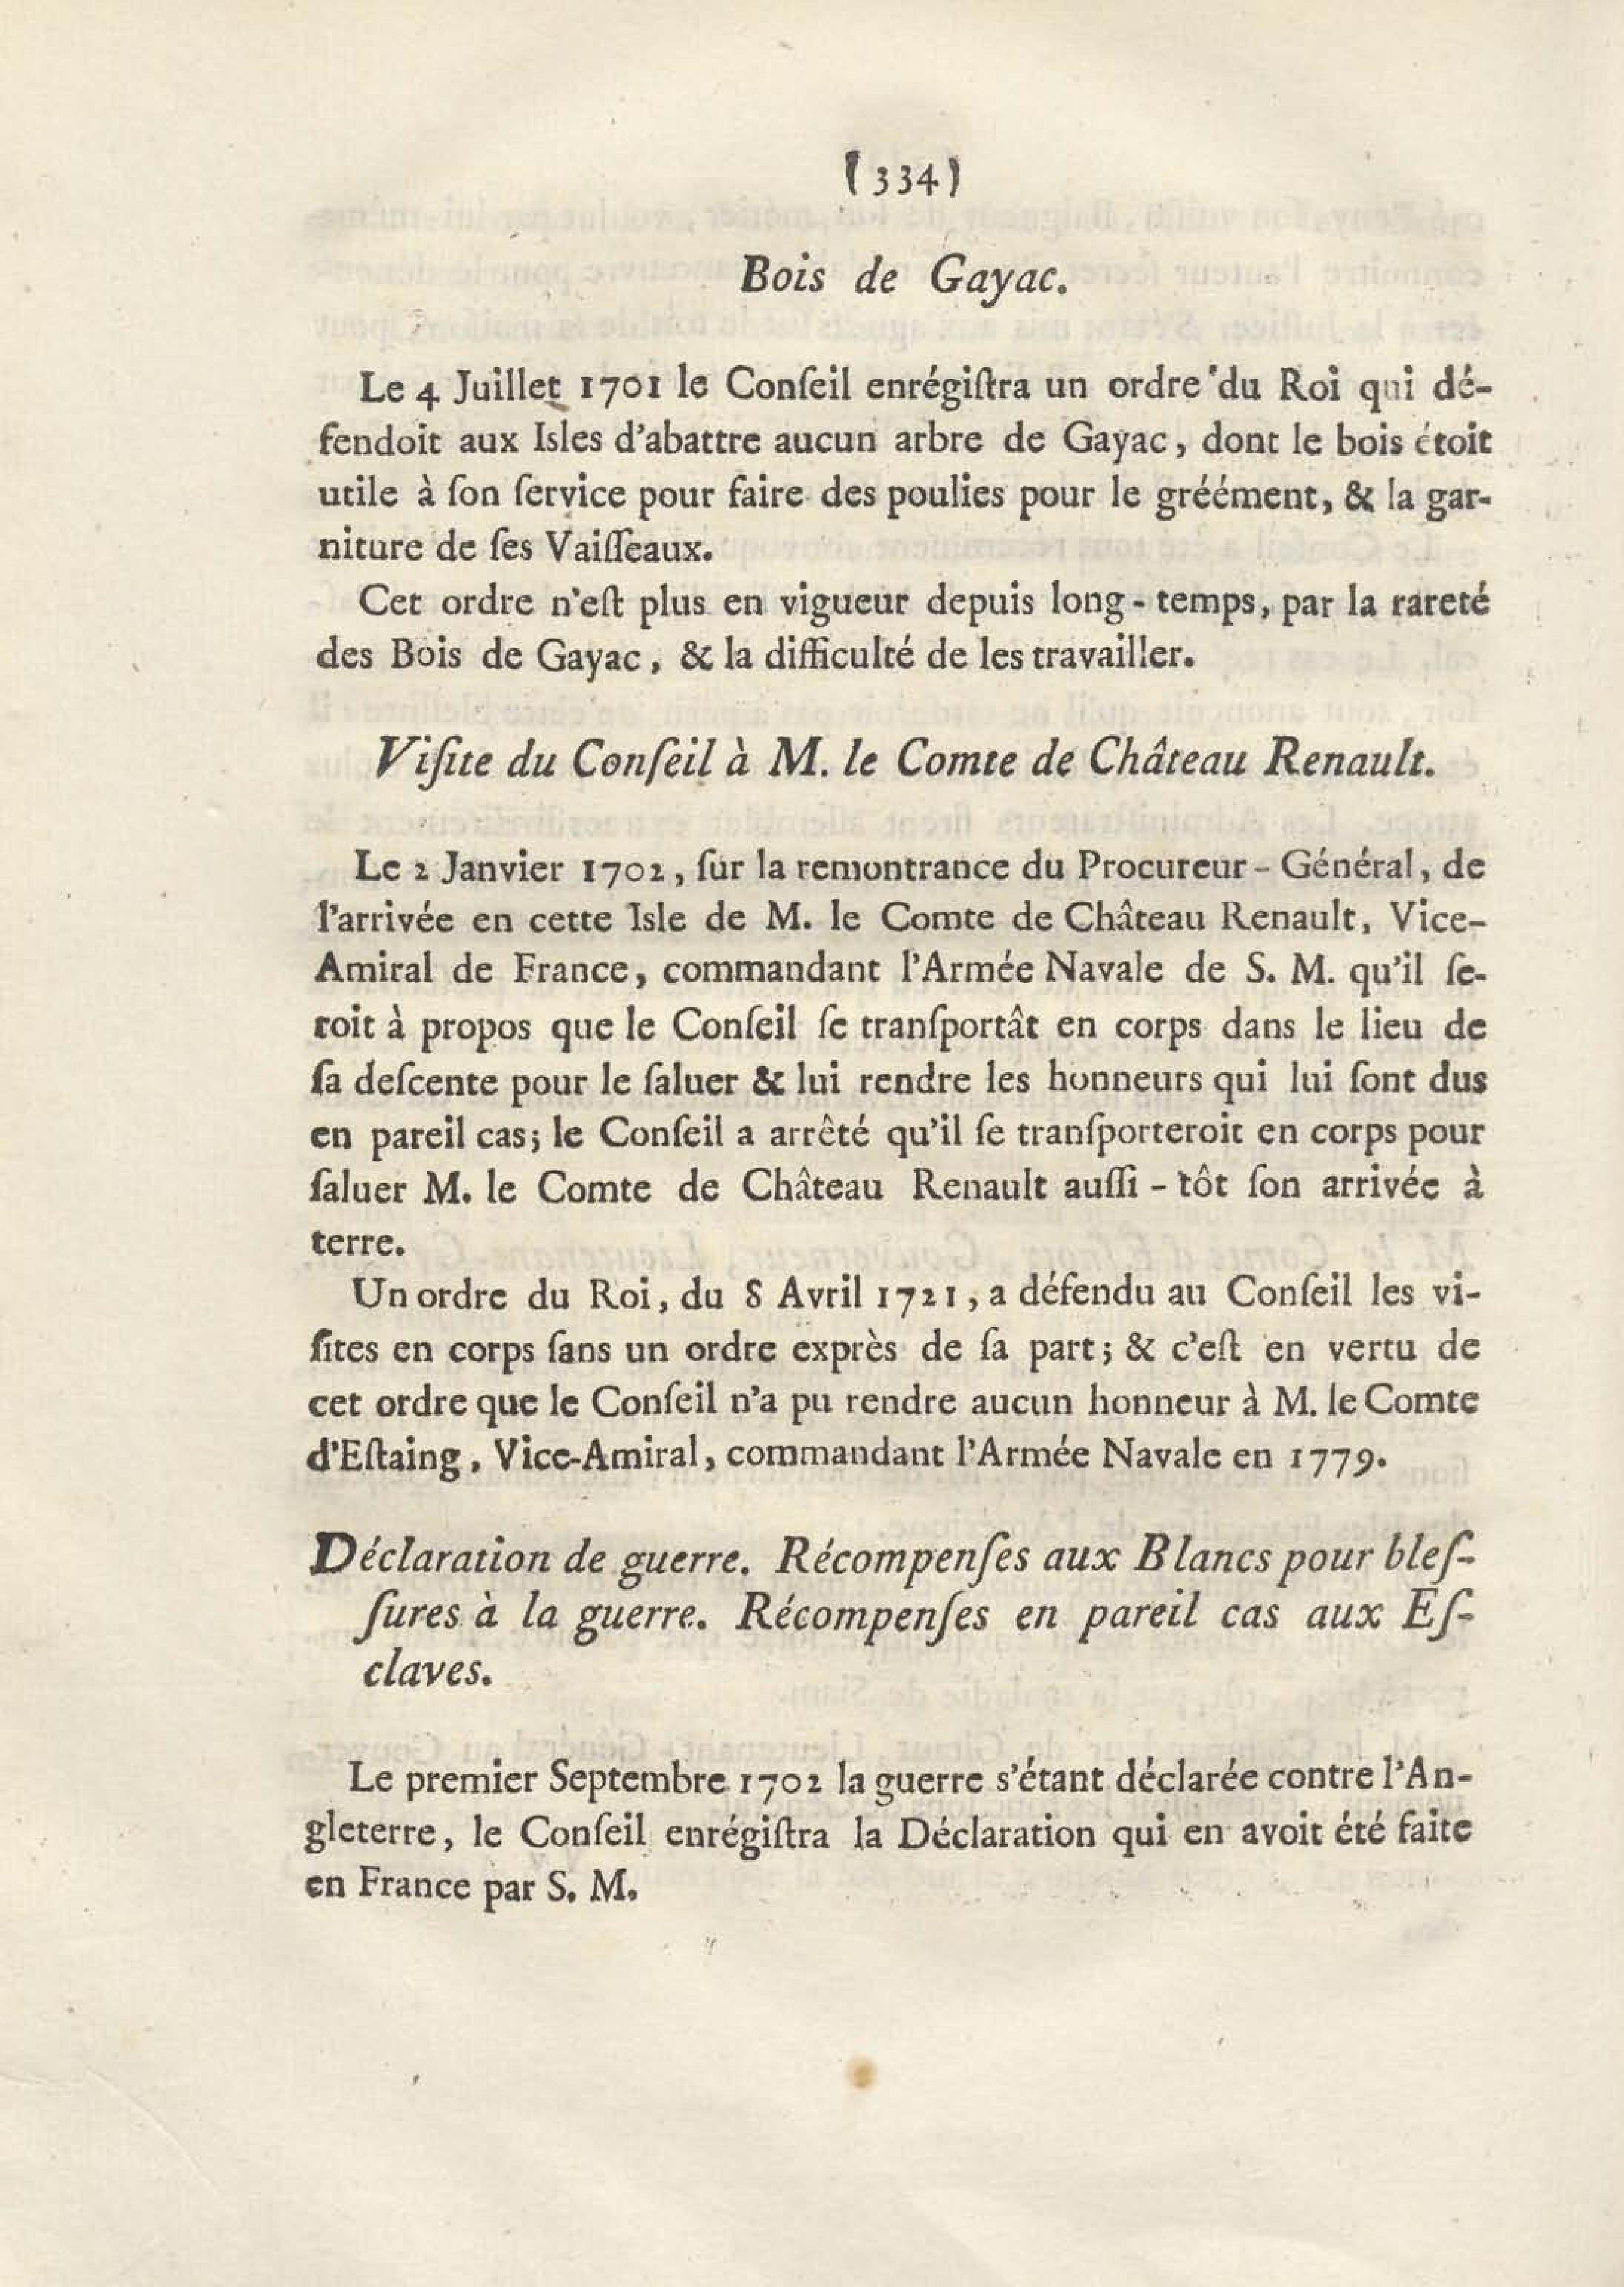 (334)
Bois de Gayac.
Le 4 Juillet 1701 le Conſeil enrégiſtra un ordre du Roi qui dé-
fendoit aux Isles d'abattre aucun arbre de Gayac, dont le bois étoit
utile à ſon ſervice pour faire des poulies pour le gréément, & la gar-
niture de ſes Vaiſſeaux.
Cet ordre n'eſt plus en vigueur depuis long-temps, par la rareté
des Bois de Gayac, & la difficulté de les travailler.
Viſite du Conſeil à M. le Comte de Château Renault.
Le 2 Janvier 1702, ſur la remontrance du Procureur-Général, de
l'arrivée en cette Isle de M. le Comte de Château Renault, Vice-
Amiral de France, commandant l'Armée Navale de S. M. qu'il ſe-
roit à propos que le Conſeil ſe tranſportât en corps dans le lieu de
ſa deſcente pour le ſaluer & lui rendre les honneurs qui lui ſont dus
en pareil cas; le Conſeil a arrêté qu'il ſe tranſporteroit en corps pour
ſaluer M. le Comte de Château Renault auſſi-tôt ſon arrivée à
terre.
Un ordre du Roi, du 8 Avril 1721, a défendu au Conſeil les vi-
ſites en corps ſans un ordre exprès de ſa part; & c'eſt en vertu de
cet ordre que le Conſeil n'a pu rendre aucun honneur à M. le Comte
d'Eſtaing, Vice-Amiral, commandant l'Armée Navale en 1779.
Déclaration de guerre. Récompenſes aux Blancs pour bleſ-
ſures à la guerre. Récompenſes en pareil cas aux Eſ-
claves.
Le premier Septembre 1702 la guerre s'étant déclarée contre l'An-
gleterre, le Conſeil enrégiſtra la Déclaration qui en avoit été faite
en France par S. M.